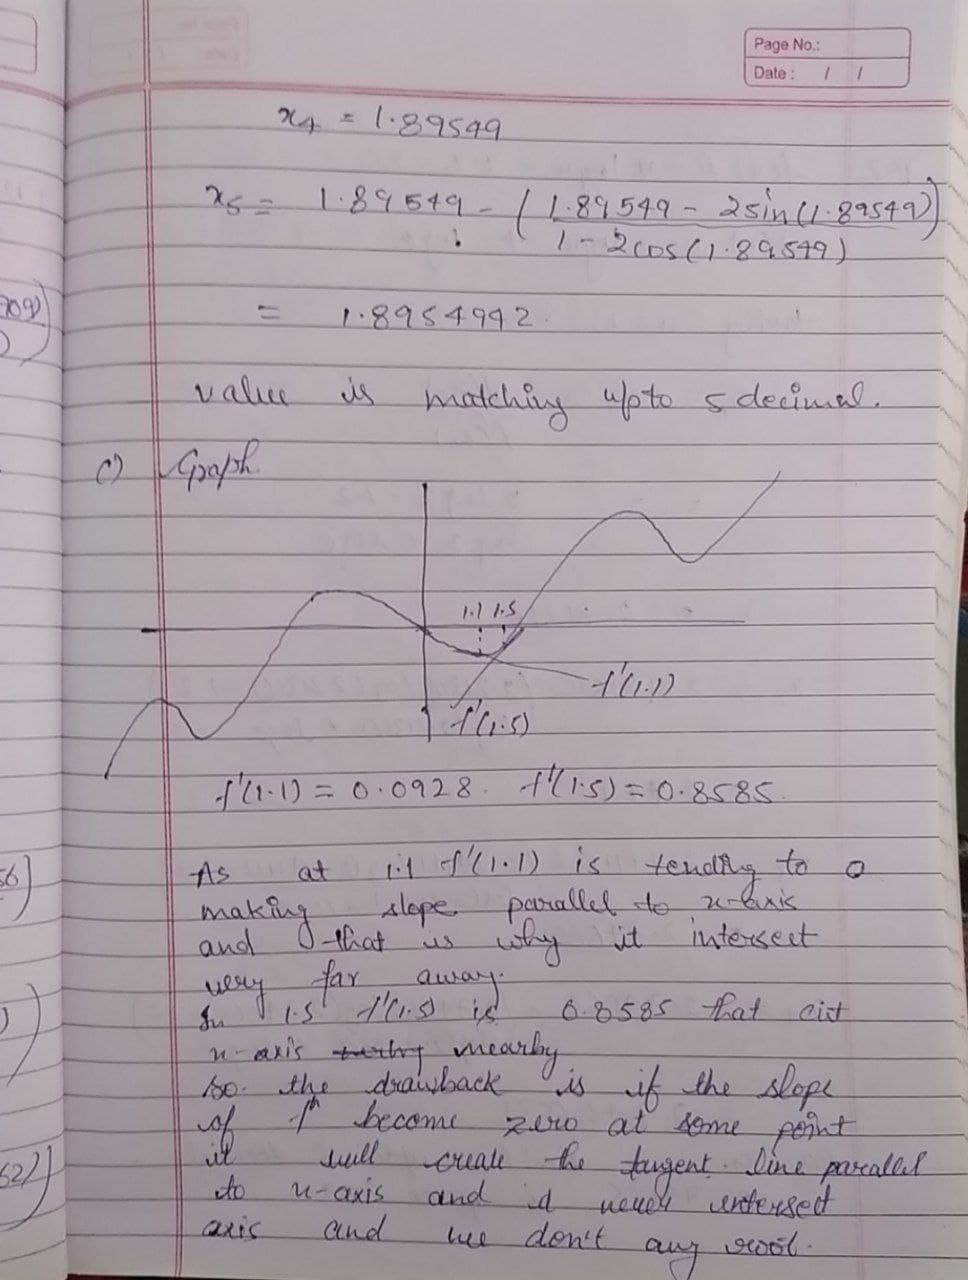 Page No.:
Date : / /
x4 = 1.89549
x5 = 1.89549 - (1.89549 - 2sin(1.89549))
1-2cos(1.89549)
= 1.8954942
value is matching upto 5 decimal.
c) Graph.
1.1 1.5
f'(1.1)
f'(1.5)
f'(1.1) = 0.0928. f'(1.5) = 0.8585.
As at 1.1 f'(1.1) is tending to 0
making slope parallel to x-axis
and that is why it intersect
very far away.
In 1.5 f'(1.5) is 0.8585 that cut
x-axis nearby
so. the drawback is if the slope
of fn become zero at some point
it will create the tangent. line parallel
to x-axis and it never intersect
axis and we don't any root.